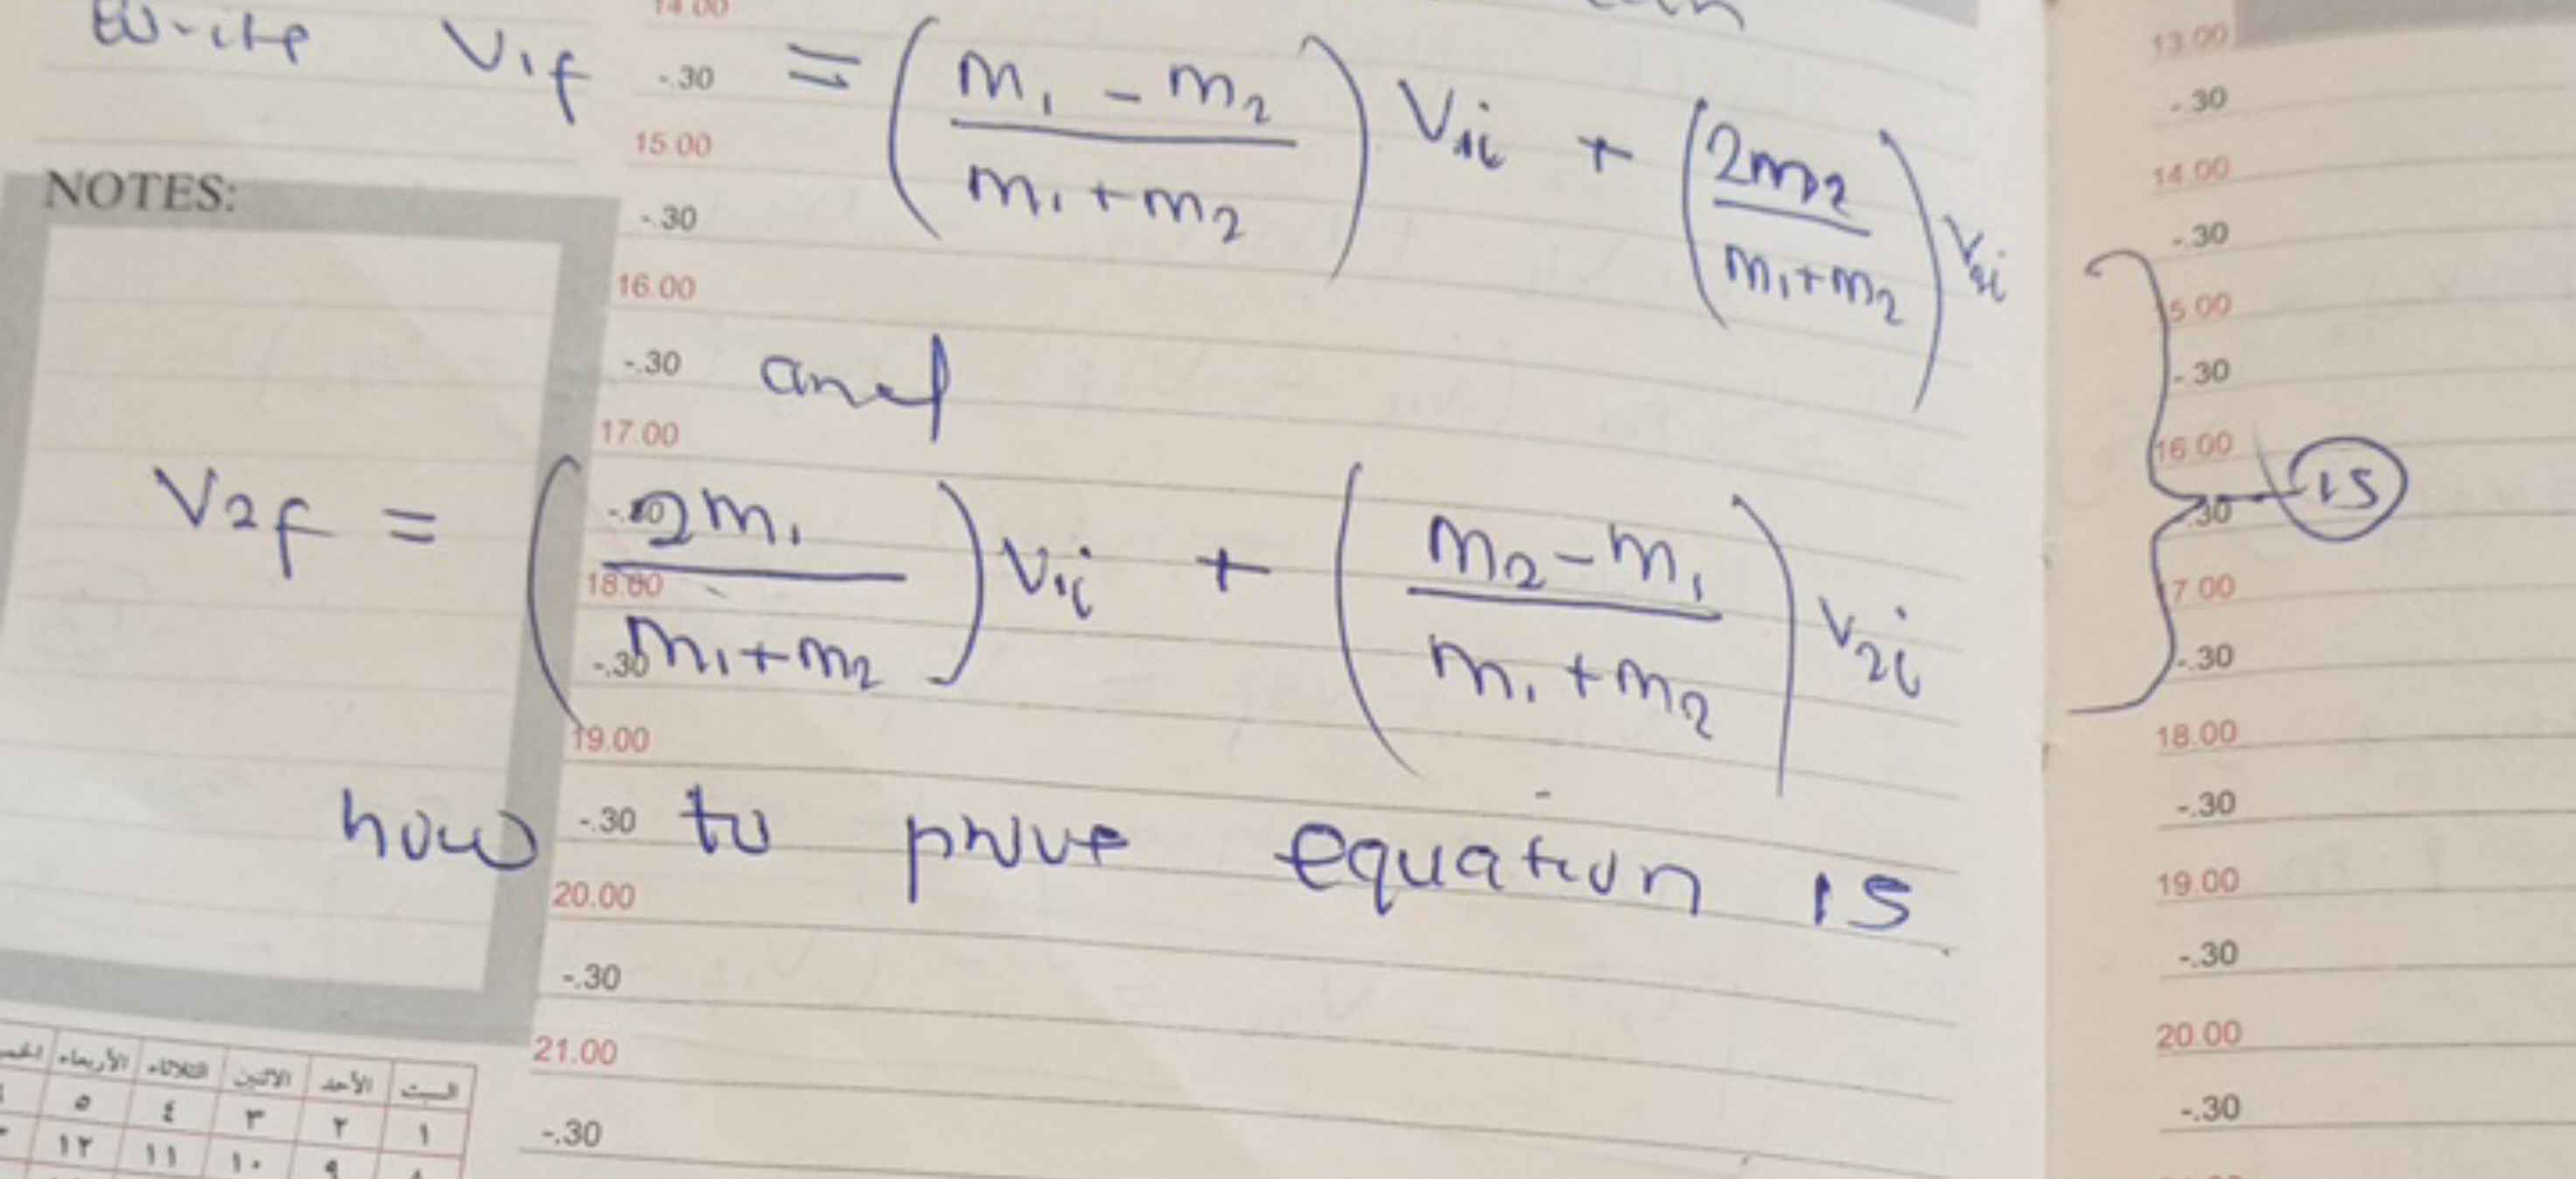 write V1f = ( m1 - m2 / m1 + m2 ) V1i + ( 2m2 / m1+m2 ) V2i
and
V2f = ( 2m1 / m1+m2 ) V1i + ( m2-m1 / m1+m2 ) V2i
15
how to prove equation 15
NOTES:
14.00
-.30
15.00
-.30
16.00
-.30
17.00
18.00
-.30
19.00
-.30
20.00
-.30
21.00
-.30
13.00
-.30
14.00
-.30
5.00
-.30
16.00
.30
7.00
-.30
18.00
-.30
19.00
-.30
20.00
-.30
السبت الأحد الاثنين الثلاثاء الأربعاء
١ ٢ ٣ ٤ ٥
٩ ١٠ ١١ ١٢